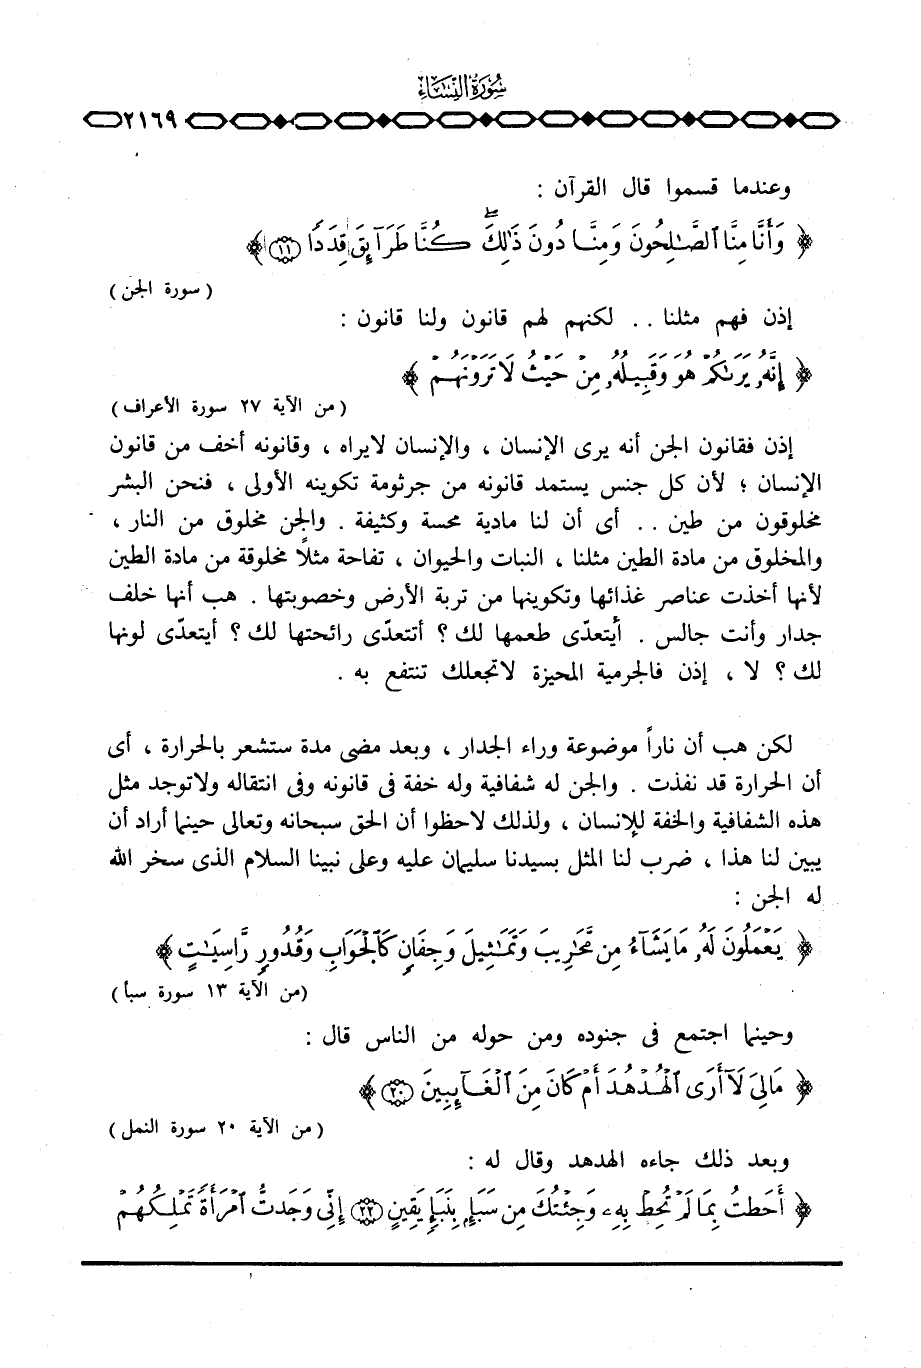 سُورَةُ النِّسَاءِ
٢١٦٩
وعندما قسموا قال القرآن :
﴿ وَأَنَّا مِنَّا ٱلصَّٰلِحُونَ وَمِنَّا دُونَ ذَٰلِكَ ۖ كُنَّا طَرَآئِقَ قِدَدًا ۝١١ ﴾
( سورة الجن )
إذن فهم مثلنا .. لكنهم لهم قانون ولنا قانون :
﴿ إِنَّهُۥ يَرَىٰكُمْ هُوَ وَقَبِيلُهُۥ مِنْ حَيْثُ لَا تَرَوْنَهُمْ ﴾
( من الآية ٢٧ سورة الأعراف )
إذن فقانون الجن أنه يرى الإنسان ، والإنسان لايراه ، وقانونه أخف من قانون
الإنسان ؛ لأن كل جنس يستمد قانونه من جرثومة تكوينه الأولى ، فنحن البشر
مخلوقون من طين .. أى أن لنا مادية محسة وكثيفة . والجن مخلوق من النار ،
والمخلوق من مادة الطين مثلنا ، النبات والحيوان ، تفاحة مثلاً مخلوقة من مادة الطين
لأنها أخذت عناصر غذائها وتكوينها من تربة الأرض وخصوبتها . هب أنها خلف
جدار وأنت جالس . أيتعدّى طعمها لك ؟ أتتعدّى رائحتها لك ؟ أيتعدّى لونها
لك ؟ لا ، إذن فالجرمية المحيزة لاتجعلك تنتفع به .
لكن هب أن ناراً موضوعة وراء الجدار ، وبعد مضى مدة ستشعر بالحرارة ، أى
أن الحرارة قد نفذت . والجن له شفافية وله خفة فى قانونه وفى انتقاله ولاتوجد مثل
هذه الشفافية والخفة للإنسان ، ولذلك لاحظوا أن الحق سبحانه وتعالى حينما أراد أن
يبين لنا هذا ، ضرب لنا المثل بسيدنا سليمان عليه وعلى نبينا السلام الذى سخر الله
له الجن :
﴿ يَعْمَلُونَ لَهُۥ مَا يَشَآءُ مِن مَّحَٰرِيبَ وَتَمَٰثِيلَ وَجِفَانٍ كَٱلْجَوَابِ وَقُدُورٍ رَّاسِيَٰتٍ ﴾
(من الآية ١٣ سورة سبأ )
وحينما اجتمع فى جنوده ومن حوله من الناس قال :
﴿ مَالِىَ لَآ أَرَى ٱلْهُدْهُدَ أَمْ كَانَ مِنَ ٱلْغَآئِبِينَ ۝٢٠ ﴾
( من الآية ٢٠ سورة النمل )
وبعد ذلك جاءه الهدهد وقال له :
﴿ أَحَطتُ بِمَا لَمْ تُحِطْ بِهِۦ وَجِئْتُكَ مِن سَبَإٍۭ بِنَبَإٍ يَقِينٍ ۝٢٢ إِنِّى وَجَدتُّ ٱمْرَأَةً تَمْلِكُهُمْ